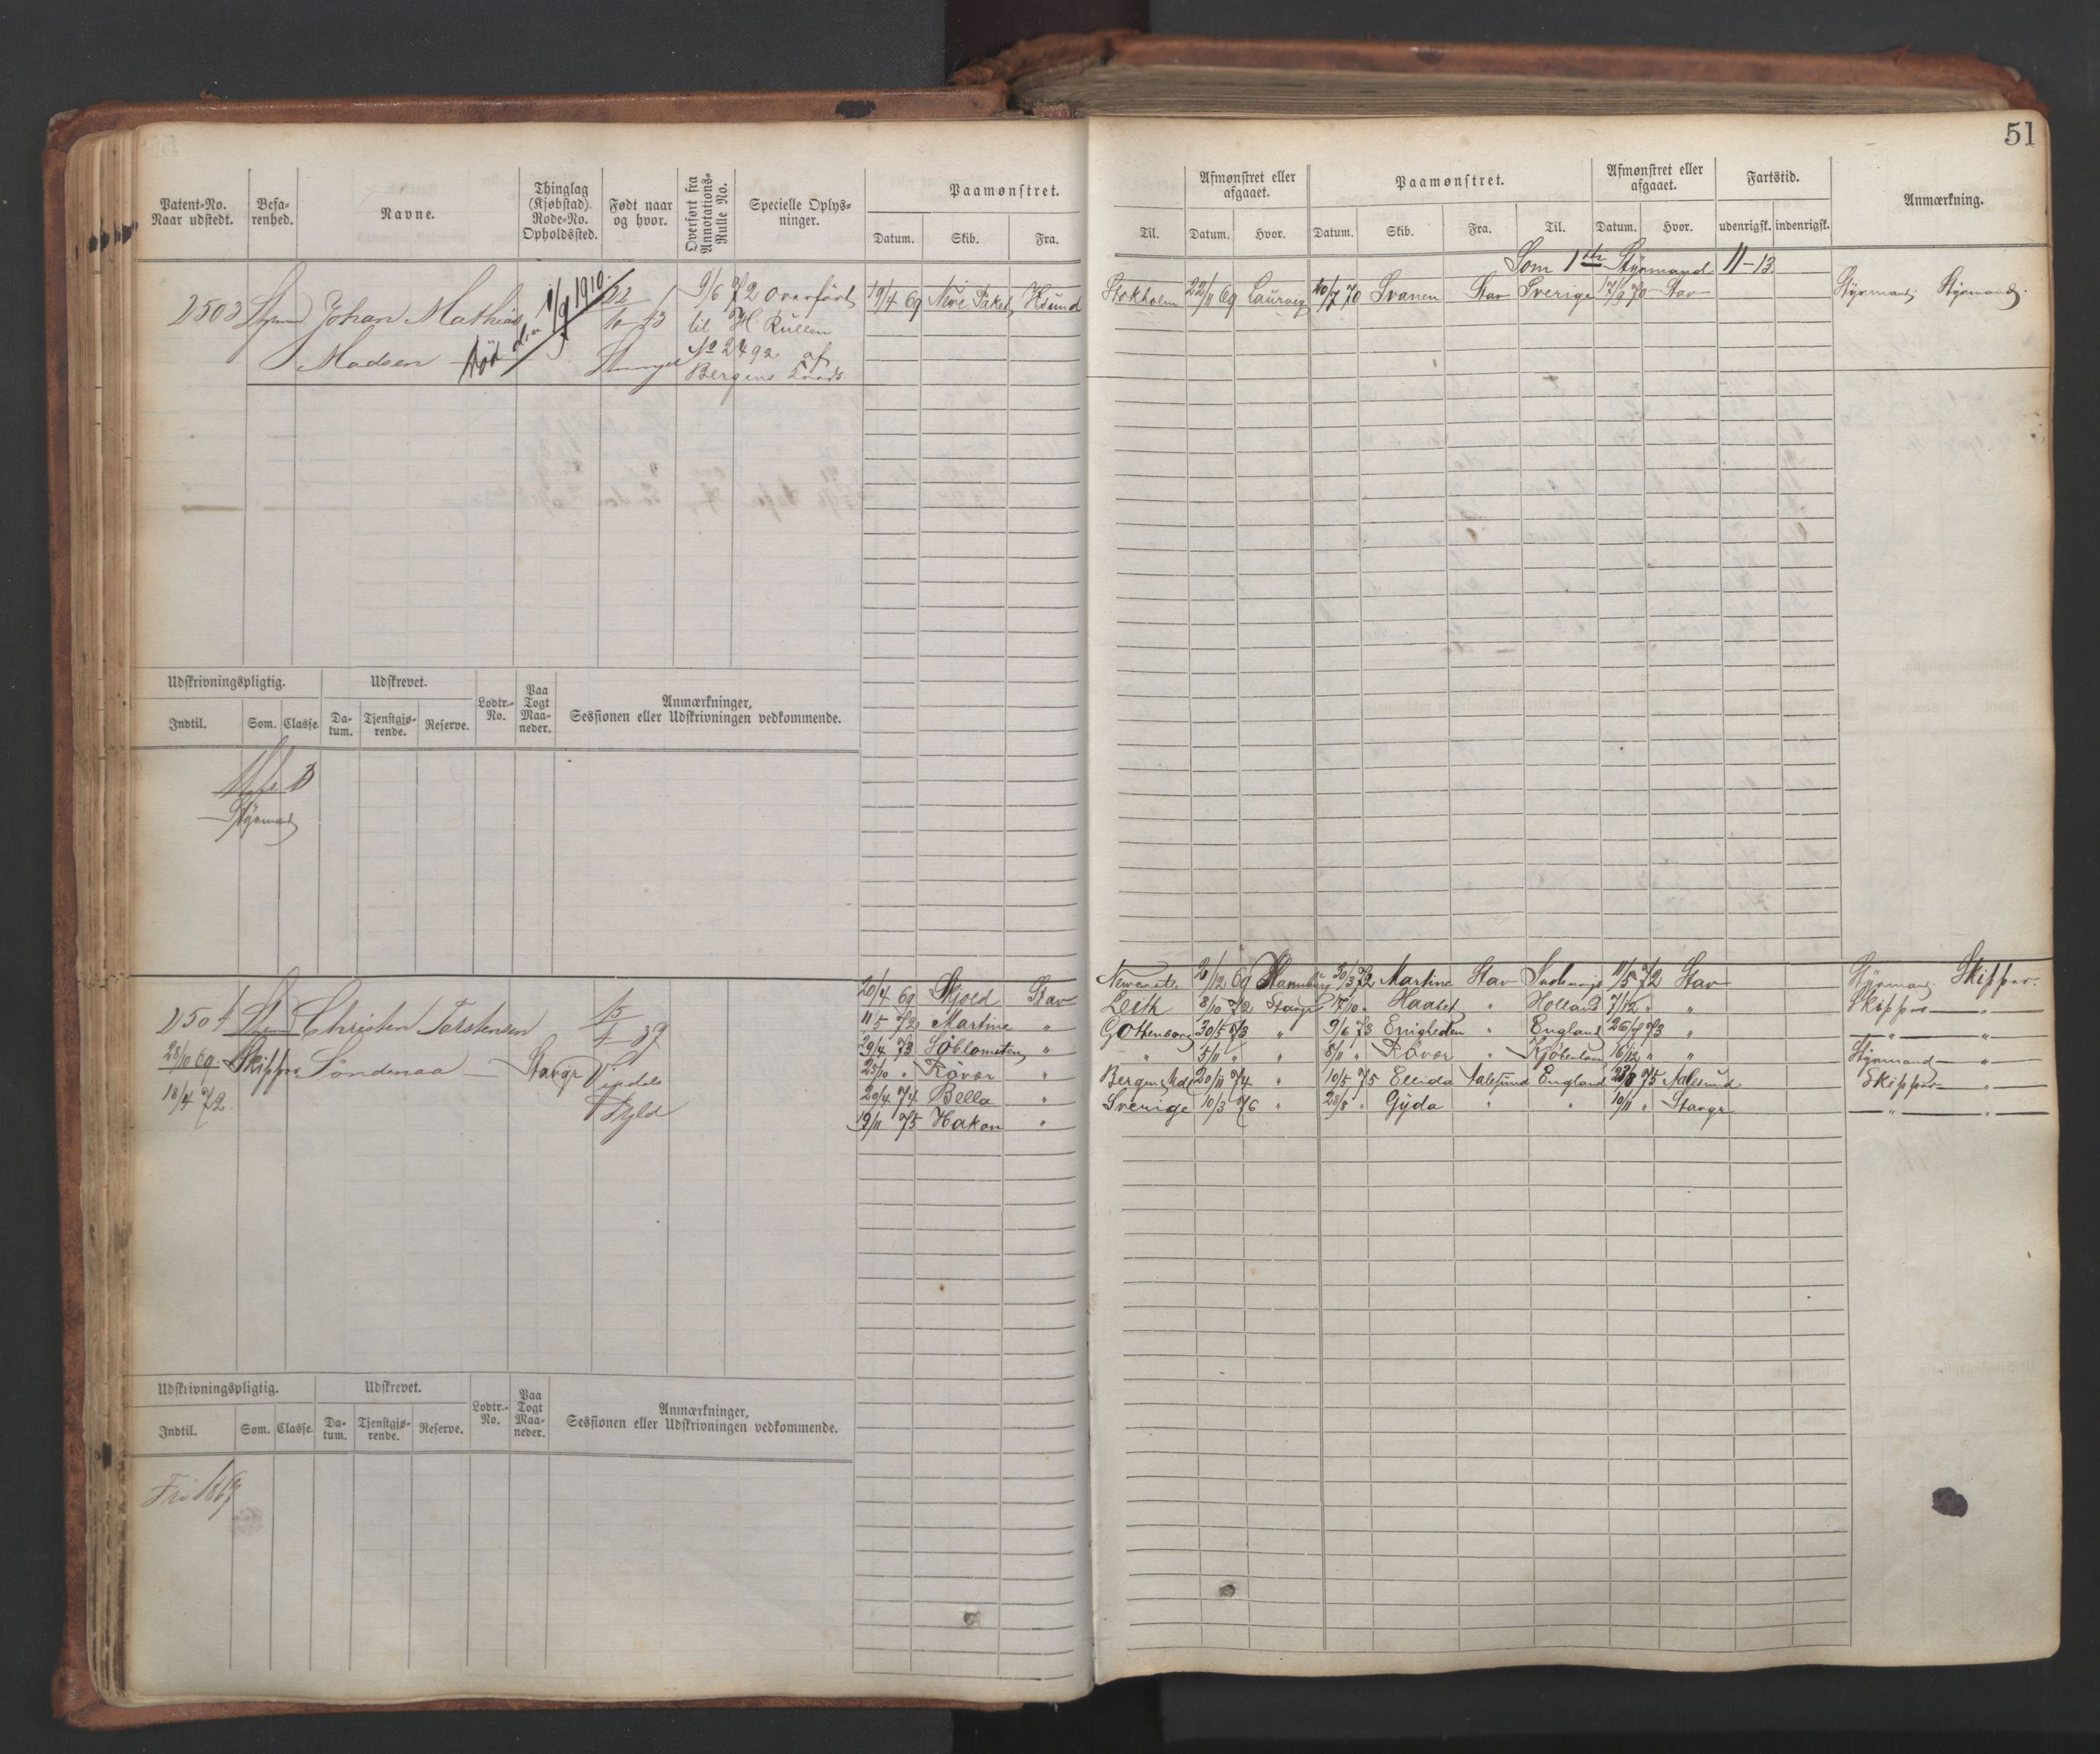 51
Patent-No. Naar udstedt. Befarenhed. Navne. Thinglag (Kjøbstad). Rode-No. Opholdssted. Født naar og hvor. Overført fra Annotations-Rulle No. Specielle Oplysninger. Paamønstret. Datum. Skib. Fra.
Til. Afmønstret eller afgaaet. Datum. Hvor. Paamønstret. Datum. Skib. Fra. Til. Afmønstret eller afgaaet. Datum. Hvor. Fartstid. udenrigsk. indenrigsk. Anmærkning.
Som 1ste Styrmand 11-13
2503 Johan Mathias 1/9 1910 22/10 9/6 72 overført 19/4 69 Ksund
Stokholm 22/11 69 Laurvig 20/7 70 Svanen Stav Sverige 17/9 70 Stav Styrmand Styrmand.
til H. Rullen
Madsen Død No 2492 af
Bergens
Udskrivningspligtig. Udskrevet. Lodtr.-No. Paa Togt Maaneder. Anmærkninger, Sessionen eller Udskrivningen vedkommende.
Indtil. Som. Classe. Datum. Tjenstgjørende. Reserve.
Styrmand
2504 Christen Torstensen 15/4 37 20/4 69 Skjold Stav
28/10 69 Skipper Søndenaa — Stavgr 11/5 72 Martine "
18/4 72. 29/4 73 Søblomsten "
25/10 " Røvær "
20/4 74 Bella "
19/11 75 Hakon "
Newcastle 21/12 69 Hamburg 30/3 72 Martine Stav 11/5 72 Stav Styrmand Skipper.
Leith 8/10 72 Stavgr 17/10 " Haabet " Holland 7/12 " " Skipper — " —
Gottenborg 30/5 73 " 9/6 73 Enigheden " England 26/9 73 " — " — " —
" 5/11 " " 8/11 " Røvær " Kjøbenhavn 16/12 " " Styrmand — " —
Bergen 20/11 74 " 10/5 75 Ellida Aalesund England 23/8 75 Aalesund Skipper — " —
Sverige 10/3 76 " 28/8 " Gyda " " 10/11 " Stavgr — " — " —
Udskrivningspligtig. Udskrevet. Lodtr.-No. Paa Togt Maaneder. Anmærkninger, Sessionen eller Udskrivningen vedkommende.
Indtil. Som. Classe. Datum. Tjenstgjørende. Reserve.
Fri 1869